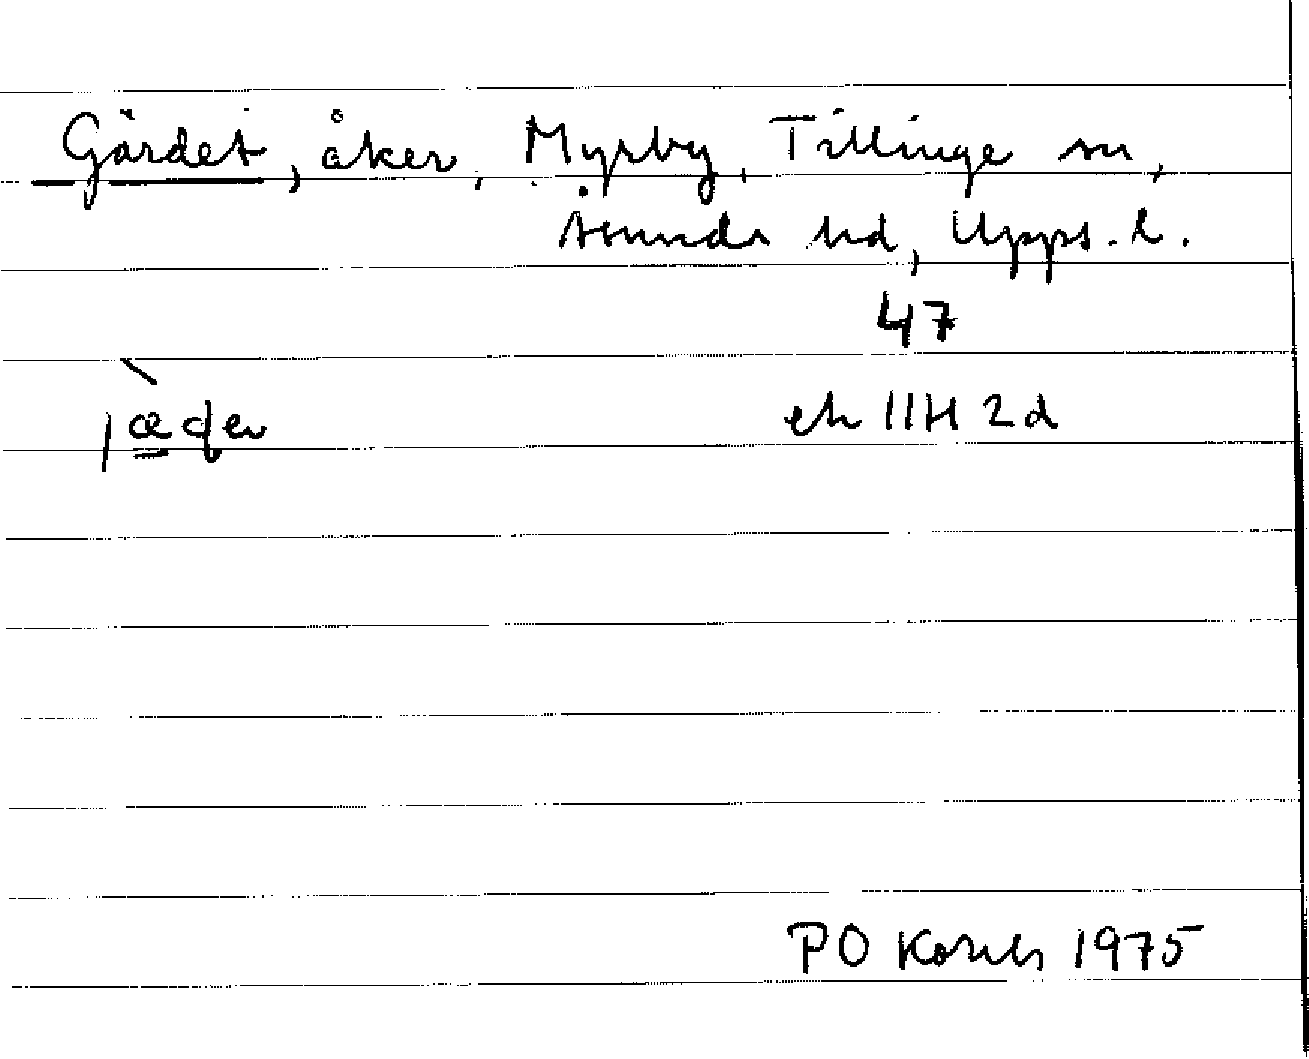 Gärdet, åker, Myrby, Tillinge sn,
Åsunda hd, Upps. l.
47
ek 11H 2d
PO Konils 1975